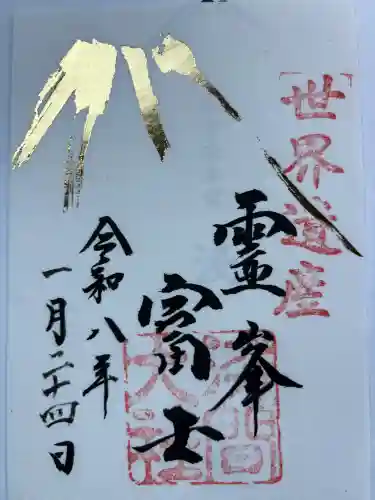 世界遺産
靈峯
富士
令和八年
一月二十四日